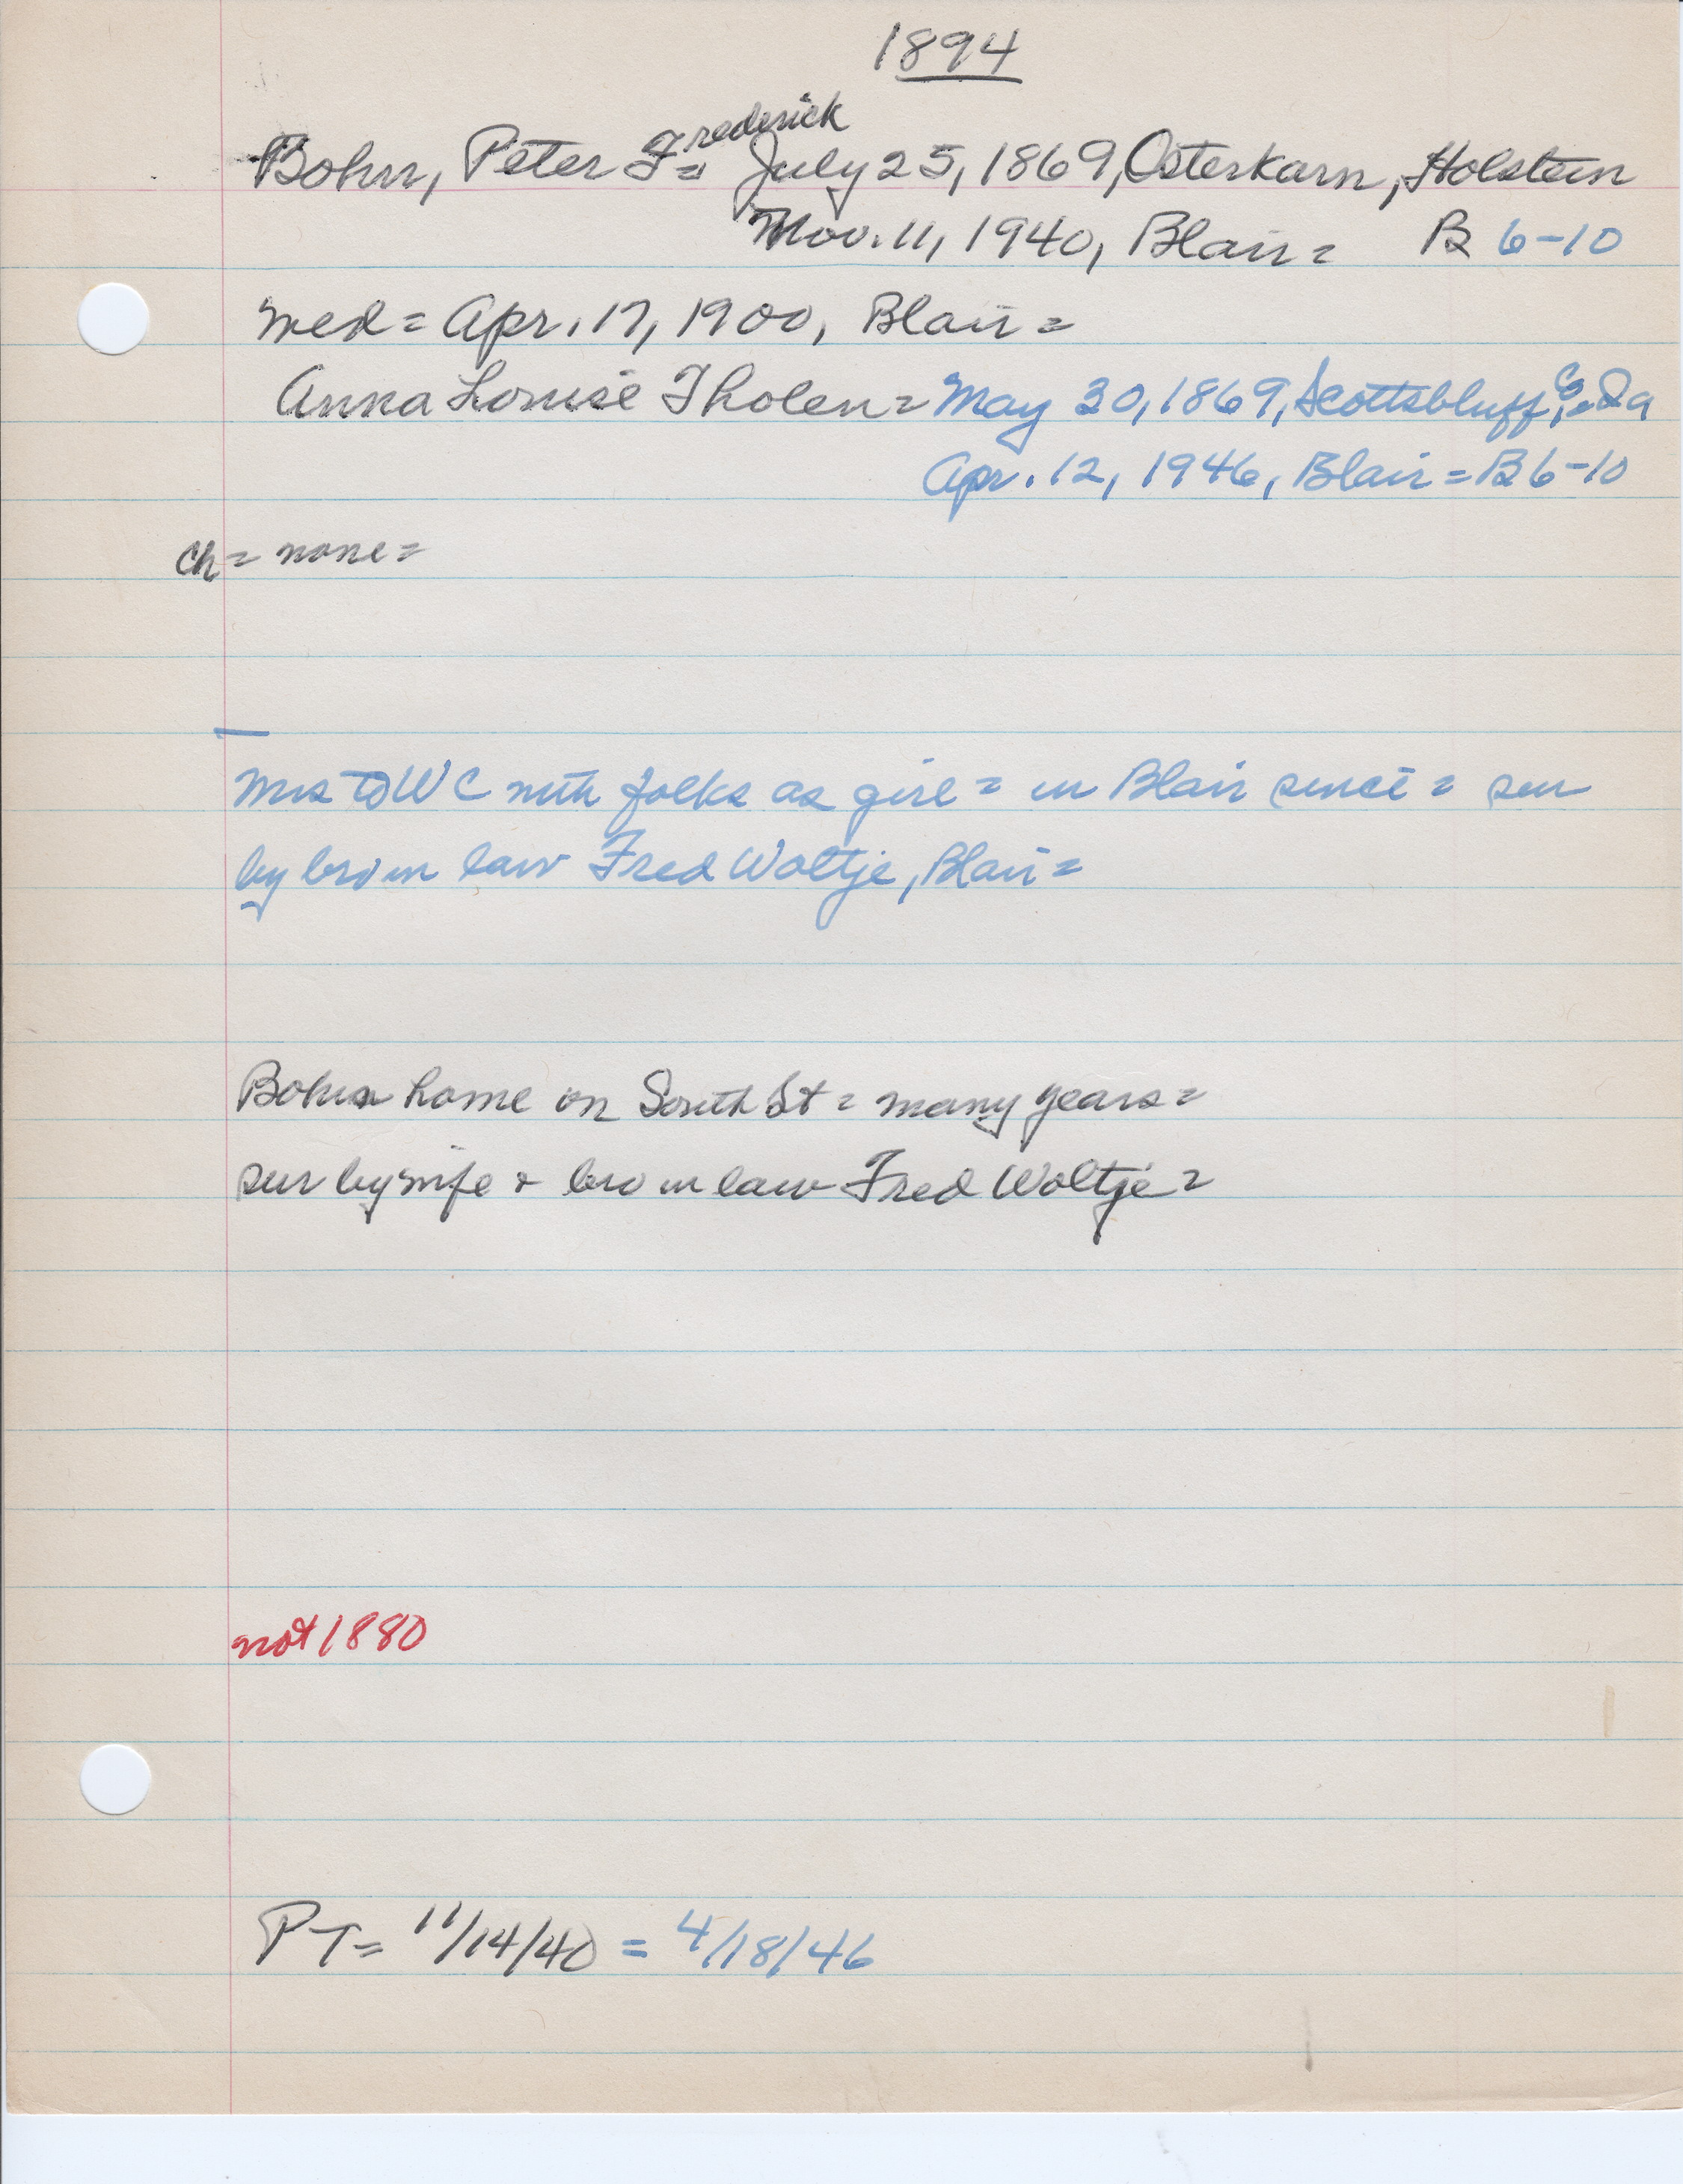 1894
Bohn, Peter Frederick = July 25, 1869, Osterkarn, Holstein
Nov. 11, 1940, Blair = B 6-10
wed = Apr. 17, 1900, Blair =
Anna Louise Tholen = May 30, 1869, Scottsbluff Co, = Ia
Apr. 12, 1946, Blair = B 6-10
ch = none =
Mrs to WC with folks as girl = in Blair since = sur
by bro in law Fred Woltje, Blair =
Bohn home on South St = many years =
sur by wife + bro in law Fred Woltje =
not 1880
PT = 11/14/40 = 4/18/46